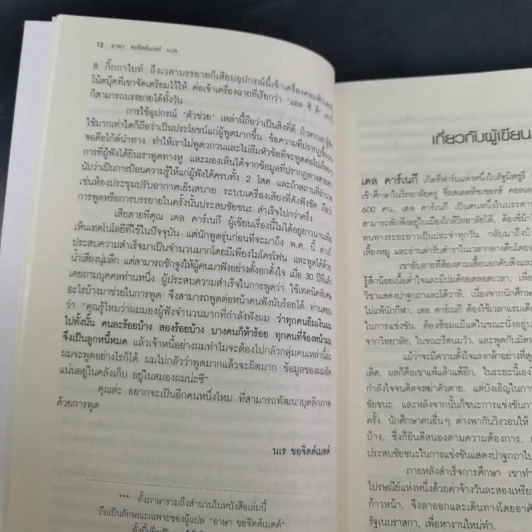 12 อาษา ขอจิตต์เมตต์ แปล
8 กิ๊กกาไบท์ ถึงเวลาบรรยายก็เสียบอุปกรณ์นี้เข้าเครื่องคอมพิวเตอร์
โน้ตบุ๊คที่เขาจัดเตรียมไว้ให้ ต่อเข้าเครื่องฉายที่เรียกว่า
ก็สามารถบรรยายได้ทั้งวัน
การใช้อุปกรณ์ "ตัวช่วย" เหล่านี้ถือว่าเป็นสิ่งที่ดี
ใช้มากเท่าใดก็ถือว่าเป็นประโยชน์แก่ผู้พูดมากขึ้น
จอคือไกด์นำทาง ทำให้เราไม่พูดวกวนและไม่ลืมหัวข้อที่จะพูดต่อไป
การที่ผู้ฟังได้ยินเราพูดทางหู และมองเห็นได้จากข้อมูลที่ปรากฏทาง
นับว่าเป็นการป้อนความรู้ให้แก่ผู้ฟังได้ครบทั้ง 2 โสต
เช่นห้องประชุมปรับอากาศเย็นสบาย ระบบเครื่องเสียงที่ดังฟังชัด
การพูดหรือการบรรยายในครั้งนั้นประสบชัยชนะ สำเร็จไปกว่าครึ่ง
เสียดายที่คุณ เดล คาร์เนกี ผู้เขียนเรื่องนี้ไม่ได้อยู่ยาวนาน
เห็นเทคโนโลยีที่ใช้ในปัจจุบัน แต่นักพูดรุ่นก่อนที่จะมาถึง พ.ศ. นี้
ประสบความสำเร็จมาเป็นจำนวนมากโดยมีเพียงไมโครโฟน และพูดได้ด้วย
น้ำเสียงนุ่มลึก แต่สามารถชักจูงให้ผู้คนมาฟังอย่างตั้งอกตั้งใจ เมื่อ 30 ปีที่แล้ว
เคยถามบุคคลท่านหนึ่ง ผู้ประสบความสำเร็จในการพูดว่า ใช้เทคนิคพิเศษ
อะไรบ้างมาช่วยในการพูด จึงสามารถพูดต่อหน้าคนฟังนับร้อยได้
ว่า "คุณรู้ไหมว่าผมมองผู้ฟังจำนวนมากที่กำลังฟังผม ว่าทุกคนยืมเงินผม
ไปทั้งนั้น คนละร้อยบ้าง สองร้อยบ้าง บางคนก็ห้าร้อย ทุกคนที่จ้องหน้าผม
จึงเป็นลูกหนี้หมด แล้วเจ้าหนี้อย่างผมทำไมจะต้องไปกลัวกลุ่มคนเหล่านี้
ผมจะพูดอย่างไรก็ได้ ผมไม่กลัวว่าพูดมากแล้วจะผิดมาก ข้อมูลของผมอัด
แน่นอยู่ในคลังเก็บ อยู่ในสมองผมน่ะซี"
คุณล่ะ อยากจะเป็นอีกคนหนึ่งไหม ที่สามารถพัฒนาบุคลิกภาพ
ด้วยการพูด
นเร ขอจิตต์เมตต์
*** ทั้งภาษารวมถึงสำนวนในหนังสือเล่มนี้
ถือเป็นลักษณะเฉพาะของผู้แปล "อาษา ขอจิตต์เมตต์"
เกี่ยวกับผู้เขียน
เดล คาร์เนกี เกิดที่ฟาร์มแห่งหนึ่งในรัฐมิสซูรี
เข้าศึกษาในวิทยาลัยครู
600 คน. เดล คาร์เนกี เป็นคนหนึ่งในบรรดา
สามารถพักพิงอยู่ในเมืองใกล้วิทยาลัยได้. ต้อง
หนทางระยะยาวเป็นประจำทุกวัน. กลับมาถึงบ้าน
เลี้ยงหมู และอ่านตำรับตำราในเวลากลางคืน
เขาอับอายที่ต้องสวมเสื้อนอกคับติ้ว
รู้สึกน้อยเนื้อต่ำใจและมีปมด้อยตลอดเวลา.
วิชาแสดงปาฐกถาและโต้วาที. เนื่องจากนักศึกษา
ไม่แพ้นักกีฬา. เดล คาร์เนกี ต้องใช้เวลาแรมเดือน
ในการแข่งขัน. ต้องซ้อมแม้แต่ในขณะนั่งอยู่บน
จากวิทยาลัย. ในขณะรีดนมวัว. และพูดกับ
แม้ว่าจะมีความตั้งใจแรงกล้าอย่างที่
เดิด. ผลก็คือเขาแพ้แล้วแพ้อีก. ในระยะนี้เอง
กำลังใจจนคิดจะฆ่าตัวตาย. แต่บังเอิญใน
ชัยชนะ. และหลังจากนั้นก็ชนะการแข่งขัน
ครั้ง. นักศึกษาคนอื่นๆ ต่างพากันวิงวอนให้
บ้าง. ซึ่งก็ยินดีสนองตามความต้องการ.
ประสบชัยชนะในการแข่งขันแสดงปาฐกถา
ภายหลังสำเร็จการศึกษา เขาทำ
ไปรษณีย์แห่งหนึ่งด้วยค่าจ้างวันละสองเหรียญ
ก้าวหน้า. จึงลาออกและเดินทางโดยอาศัย
รัฐเนบราสกา. เพื่อหางานใหม่ทำ.